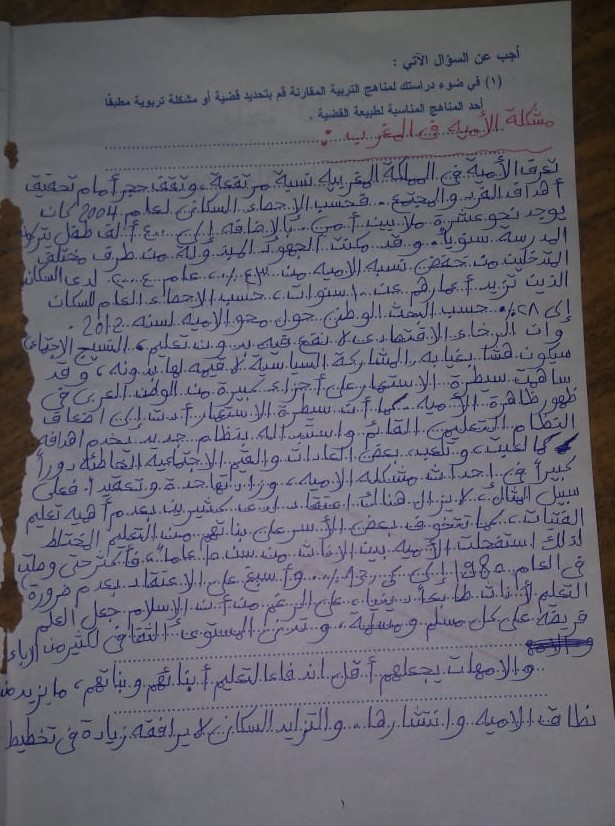 أجب عن السؤال الآتي :
(١) في ضوء دراستك لمناهج التربية المقارنة قم بتحديد قضية أو مشكلة تربوية مطبقا
أحد المناهج المناسبة لطبيعة القضية .
مشكلة الأميه في المغرب :
تعرف الأمية في المملكة المغربيه نسبة مرتفعة، وتقف حجر أمام تحقيق
أهداف الفرد والمجتمع. فحسب الإحصاء السكاني لعام 2004 كان
يوجد نحو عشرة ملايين أمي، بالإضافه إلى ألف طفل يترك
المدرسة سنوياً. وقد مكنت الجهود المبذولة من طرف مختلف
المتدخلين من خفض نسبة الاميه من ٤٣٪ عام لدى السكان
الذين تزيد أعمارهم عن ١٠ سنوات، حسب الاحصاء العام للسكان
إلى ٢٨٪ حسب البحث الوطني حول محو الاميه لسنه 2012.
وان الرخاء الاقتصادي لا نفع فيه بدون تعليم، النسيج الاجتماعي
سيكون هشا بغيابه، المشاركة السياسية لا قيمه لها بدونه، وقد
ساهمت سيطرة الاستعمار على أجزاء كبيرة من الوطن العربى في
ظهور ظاهرة الأميه. كما أن سيطرة الاستعمار أدت إلى اضعاف
النظام التعليمى القائم واستبداله بنظام جديد يخدم اهدافه
كما لعبت، وتلعب، بعض العادات والقيم الاجتماعية الخاطئة دوراً
كبيراً في احداث مشكله الاميه، وزادتها حدة وتعقيداً. فعلى
سبيل المثال، لا يزال هنالك اعتقاد لدى كثيرين بعدم أهميه تعليم
الفتيات، كما تتخوف بعض الأسر على بناتهم من التعليم المختلط
لذلك استفحلت الأميه بين الاناث من سن ١٥ عاما، فأكثر حتى وصلت
في العام ١٩٨٥ إلى وأسبغ على الاعتقاد بعدم ضرورة
التعلم لأناث طابعا دينيا، على الرغم من أن الاسلام جعل العلم
فريضة على كل مسلم ومسلمه، وتدنى المستوى الثقافي لكثير من الاباء
والامهات يجعلهم أقل اندفاعا لتعليم أبنائهم وبناتهم، ما يزيد من
نطاق الاميه وانتشارها. والتزايد السكانى لا يرافقه زيادة في تخطيط
١